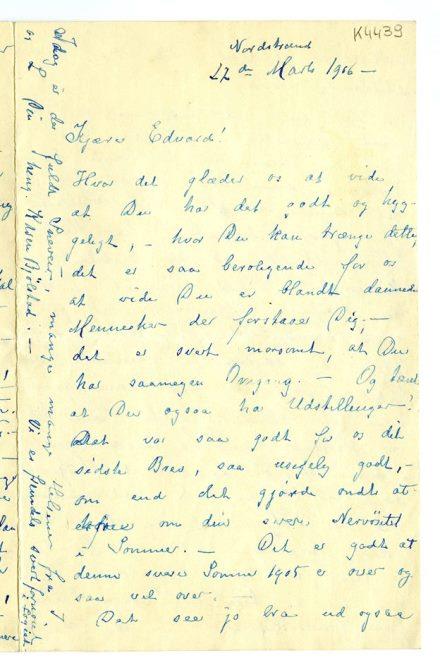 K4439
Nordstrand
27de Marts 1906 —
Kjære Edvard!
Hvor det glæder os at vide
at Du har det godt og hyg-
geligt, – hvor Du kan trænge dette,
det er saa beroligende for os
at vide Du er blandt dannede
Mennesker der forstaar Dig, –
det er svært morsomt, at Du
har saamegen Omgang. – Og tænk
at Du ogsaa har Udstillinger!
Det var saa godt for os dit
sidste Brev, saa usigelig godt, –
om end det gjørde ondt at
erfare om din svære Nervösitet
i Sommer. – Det er godt at
denne svære Sommer 1905 er over og
saa vel over. –
Det ser jo bra ud ogsaa
Idag er der fuldt Sneveir, mange mange Hilsener fra I
og L Din heng. K
Bjölstad. –
Vi er fremdeles svært fornøiet